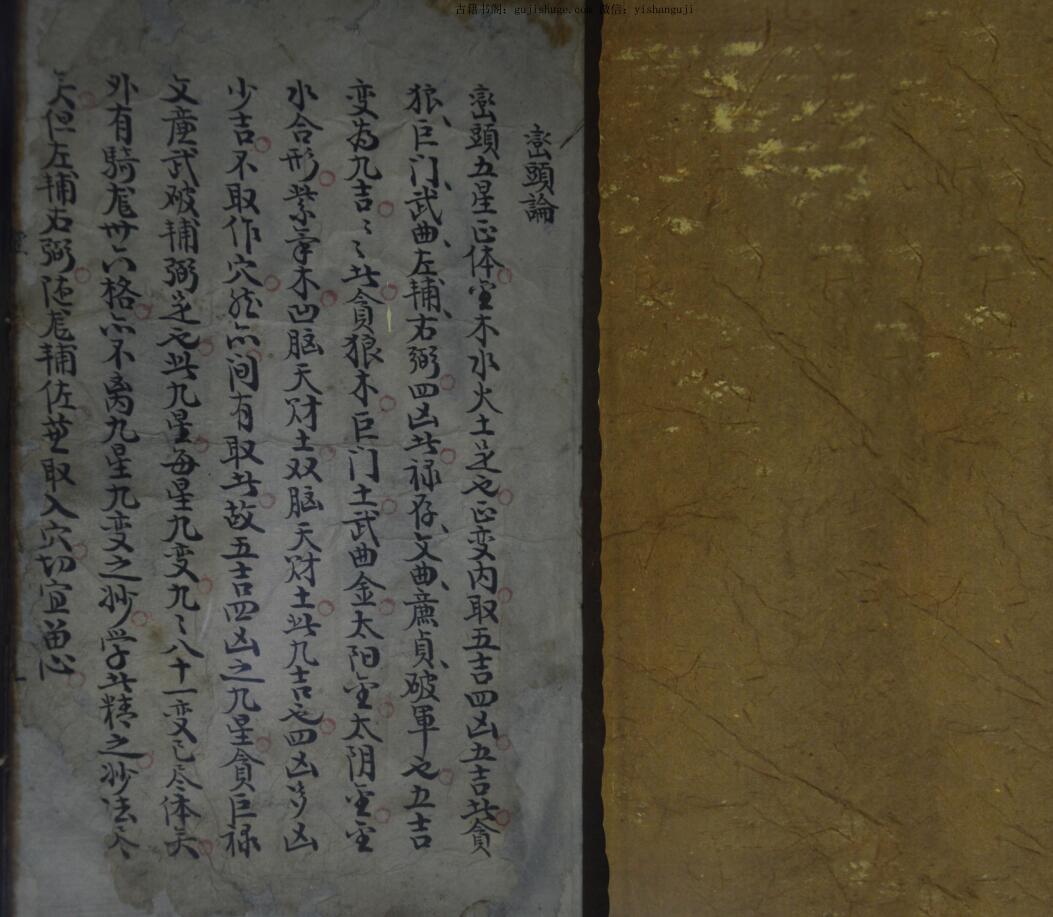 古籍书阁：gujishuge.com 微信：yishanguji
峦頭論
峦頭五星正体金木水火土是也正变内取五吉四凶五吉此貪
狼巨门武曲左輔右弼四凶此禄存文曲廉貞破軍也五吉
变为九吉〻〻此貪狼木巨门土武曲金太阳金太阴金金
水合形紫气木凹脑天财土双脑天财土此九吉也四凶多凶
少吉不取作穴然亦间有取此故五吉四凶之九星貪巨禄
文廉武破輔弼是也此九星每星九变九〻八十一变已尽体矣
外有騎龙卅六格亦不离九星九变之妙学此精之妙法尽
矣但左輔右弼随龙輔佐莫取入穴切宜留心